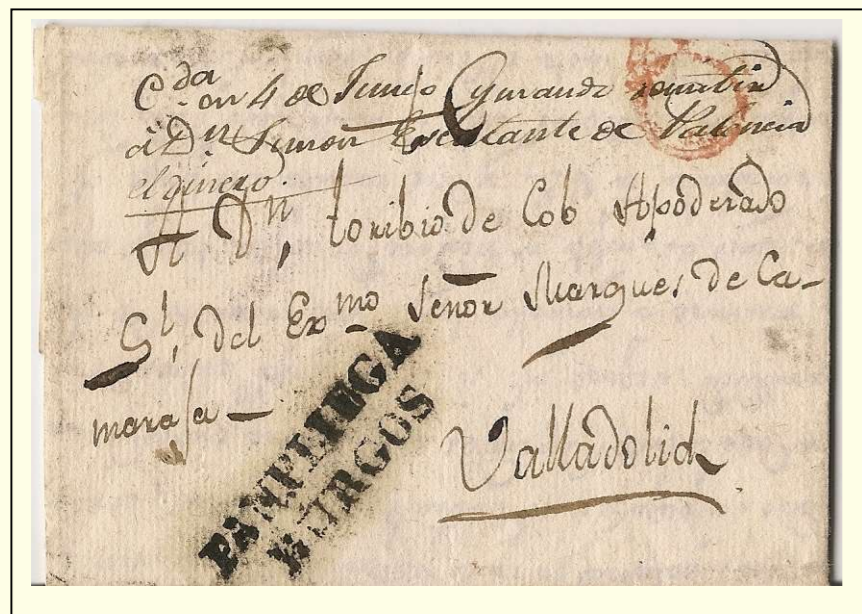 C.da en 4 de Junio
à Dn Simon Escalante de Palencia
el ginero
A Dn, toribio de Cob Apoderado
Gl, del Exmo Señor Marques de Ca-
marasa—
Valladolid
PAMPLIEGA
BURGOS